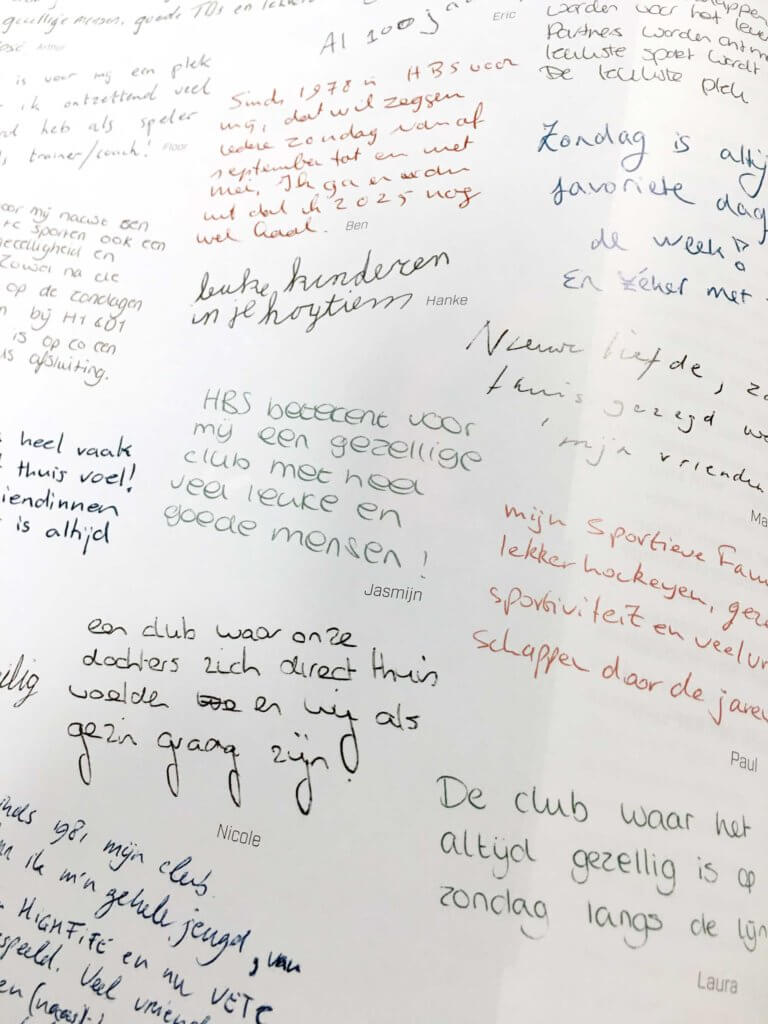 gezellige mensen, goede TD's en lekker
José
Arthur
is voor mij een plek
ik ontzettend veel
heb als speler
trainer/coach!
Floor
Al 100 ja
Eric
worden voor het leven
Partners worden ontm
leukste sport wordt
De leukste plek
Sinds 1978 is HBS voor
mij, dat wil zeggen
iedere zondag vanaf
september tot en met
mei. Ik ga er
uit dat ik 2025 nog
wel haal.
Ben
Zondag is altij
favoriete dag
de week!
En zéker met
voor mij naast een
te sporten ook een
gezelligheid en
Zowel na de
op de zondagen
bij H1 & D1
is op co een
afsluiting.
leuke kinderen
in je hoytiem
Hanke
Nieuwe liefde, zo
thuis gezegd we
mijn vrienden
Ma
heel vaak
thuis voel!
iendinnen
is altijd
HBS betecent voor
mij een gezellige
club met heel
veel leuke en
goede mensen!
Jasmijn
mijn sportieve Fam
lekker hockeyen, geze
sportiviteit en veel vr
schappen door de jaren
Paul
een club waar onze
dochters zich direct thuis
voelden en wij als
gezin graag zijn!
Nicole
ilig
De club waar het
altijd gezellig is op
zondag langs de lijn
Laura
inds 1981 mijn club.
ik m'n gehele jeugd, van
HIGHFIFE en nu VETC
speeld. Veel vriend
en (naast)